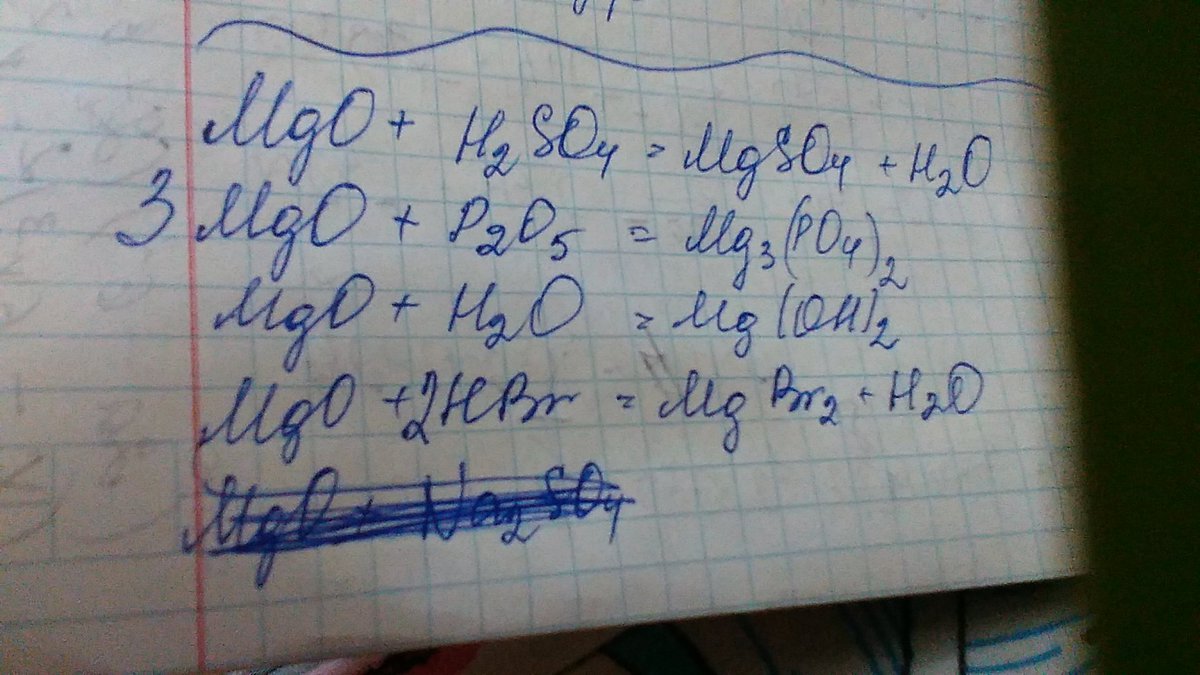 MgO + H₂SO₄ = MgSO₄ + H₂O
3 MgO + P₂O₅ = Mg₃(PO₄)₂
MgO + H₂O = Mg(OH)₂
MgO + 2HBr = MgBr₂ + H₂O
MgO + Na₂SO₄